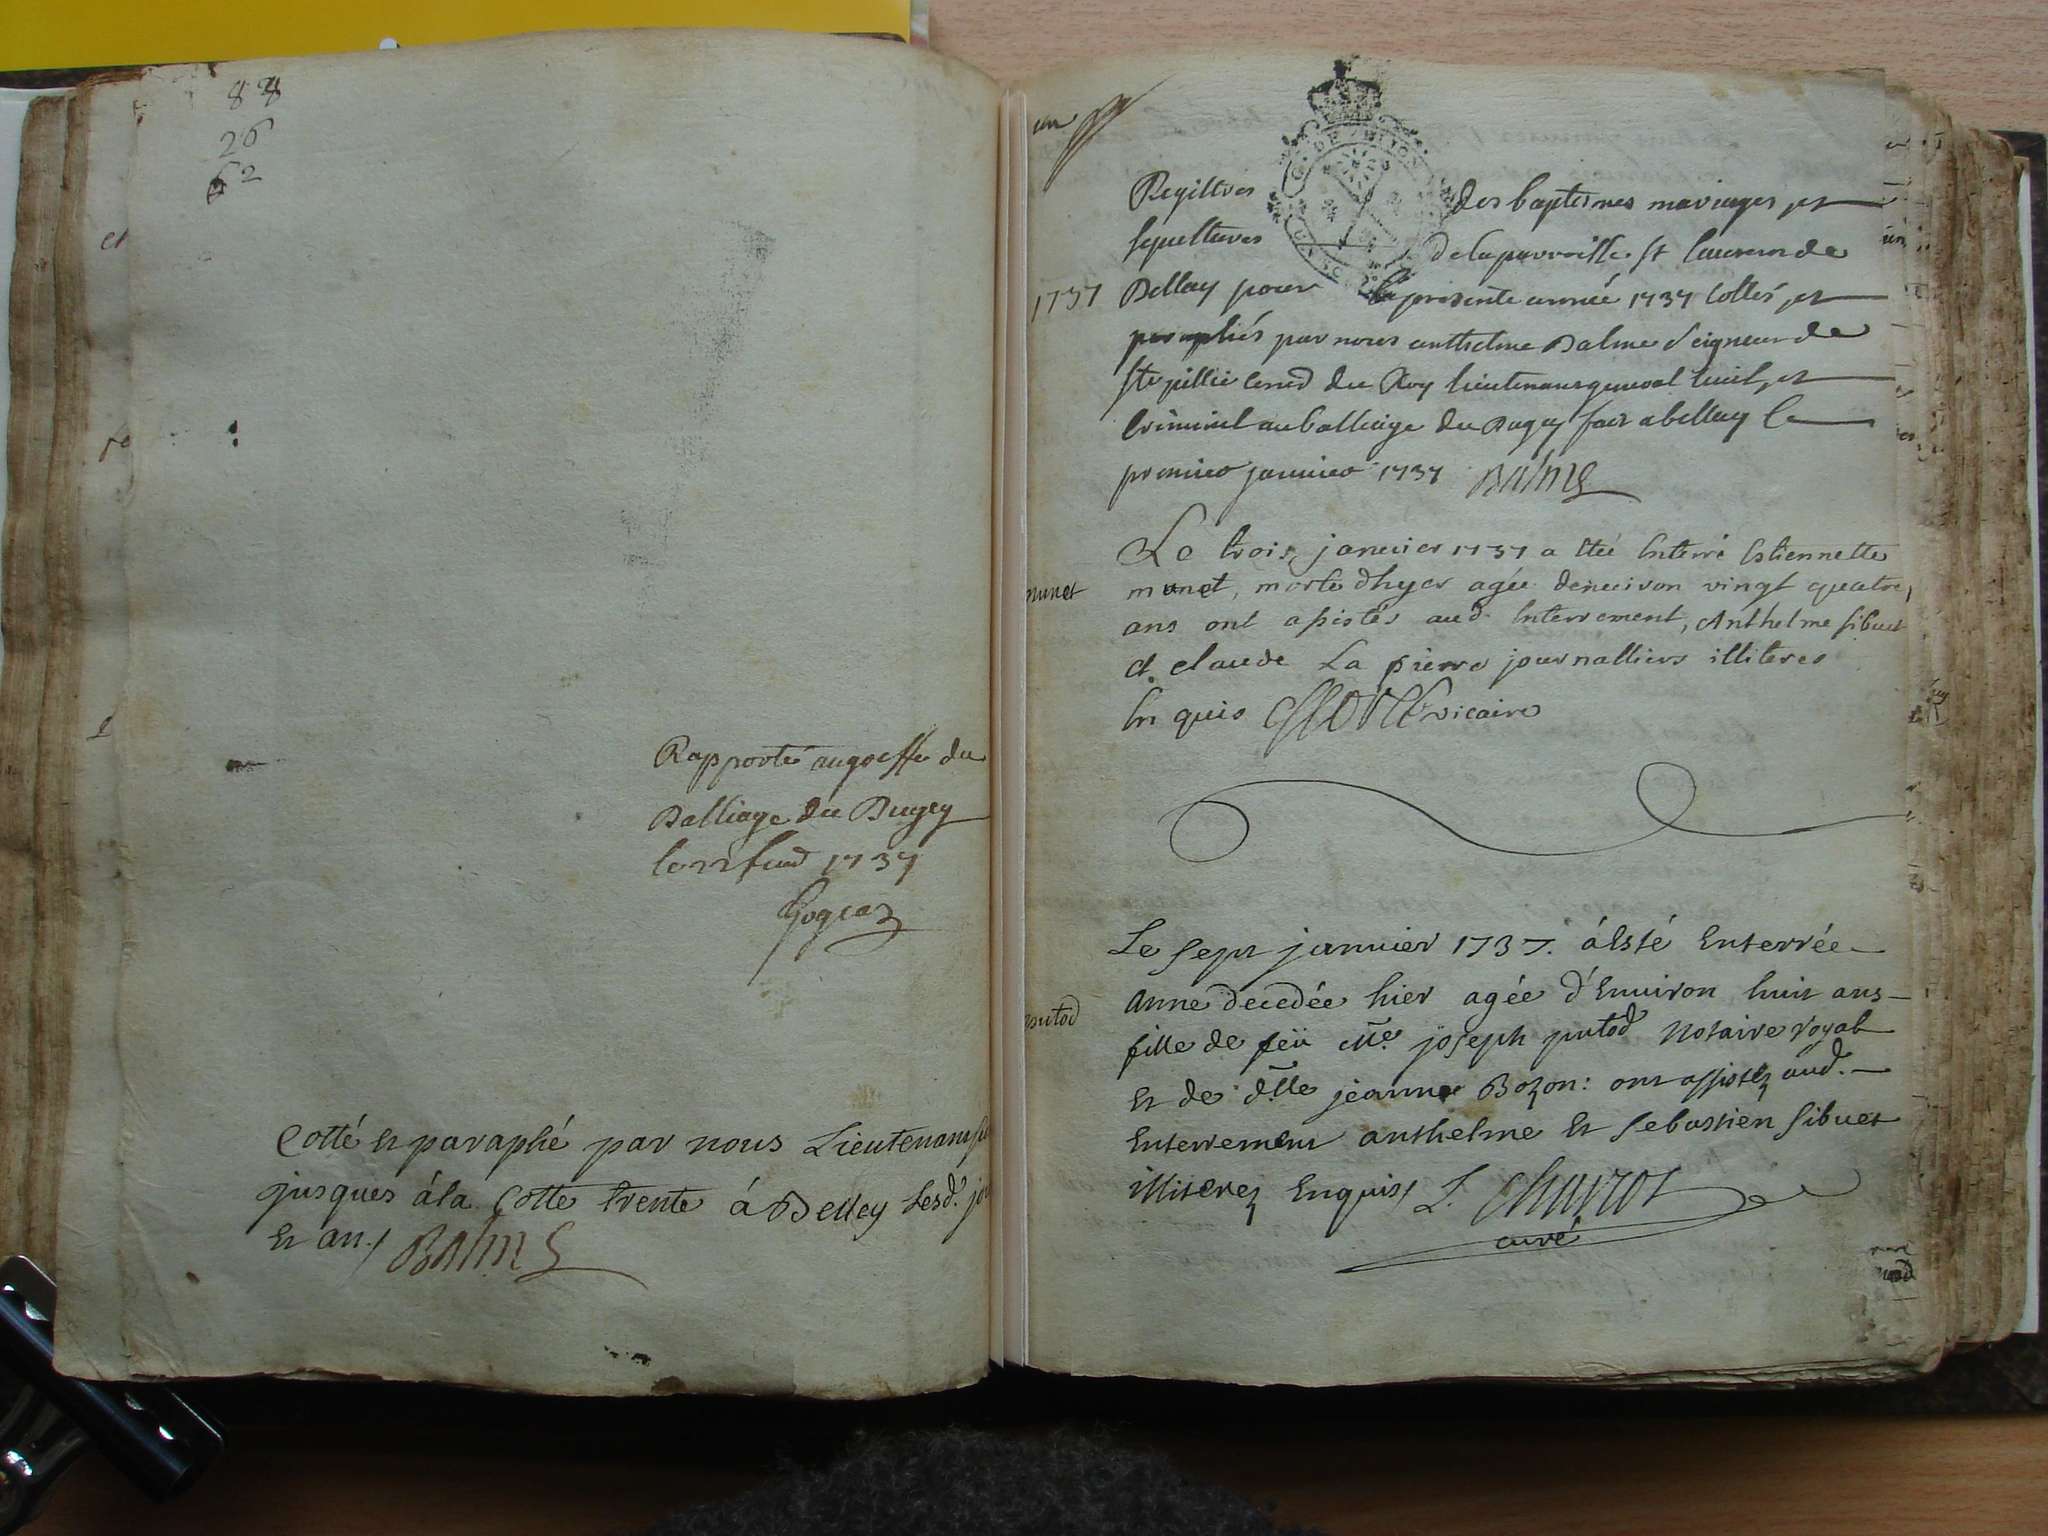 88
26
62
Rapporté au greffe du
Balliage du Bugey
1737
Cotté et paraphé par nous Lieutenant
jusques à la Cotte trente à Belley lesd.
Et an./ Balme
un
Registres des baptesmes mariages et
sepultures de la parroisse st laurent de
1737 Bellay pour la presente année 1737 Cottés et
paraphés par nous anthelme Balme seigneur de
ste jullie du Roy lieutenant general Civil et
Criminel au balliage du Bugey fait a bellay le
premier janvier 1737 Balme
Le trois janvier 1737 a été Enterré Estiennette
munet munet, morte dhyer agée denviron vingt quatre
ans ont assistés aud. Enterrement, Anthelme sibuet
et claude La pierre journalliers illiteres
Enquis vicaire
Le sept janvier 1737. á Esté Enterrée
anne decedée hier agée d'Environ huit ans
putod fille de feü Me. joseph putod Notaire royal
Et de dlle jeanne Bozon: ont assistez aud.
Enterrement anthelme Et Sebastien sibuet
illiterez Enquis/ L. Charrot
curé